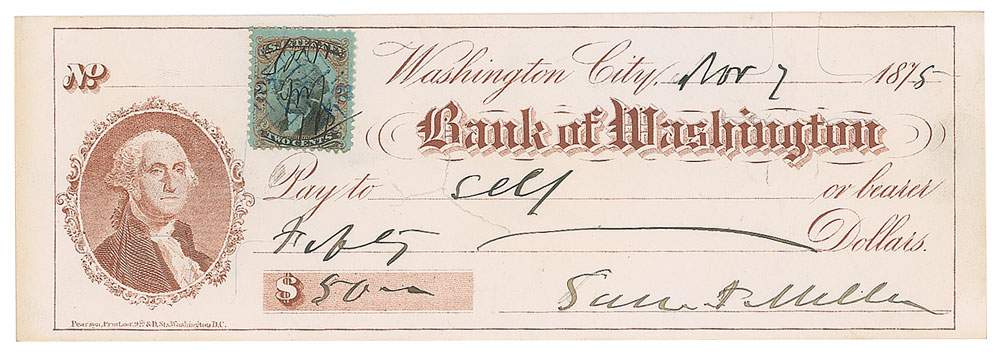 No
Washington City, Nov 7 1875
Bank of Washington
Pay to Self or bearer
Fifty Dollars.
$ 50
Miller
Pearson, Printer, 9th & D, Sts. Washington D.C.
2 2
TWO CENTS